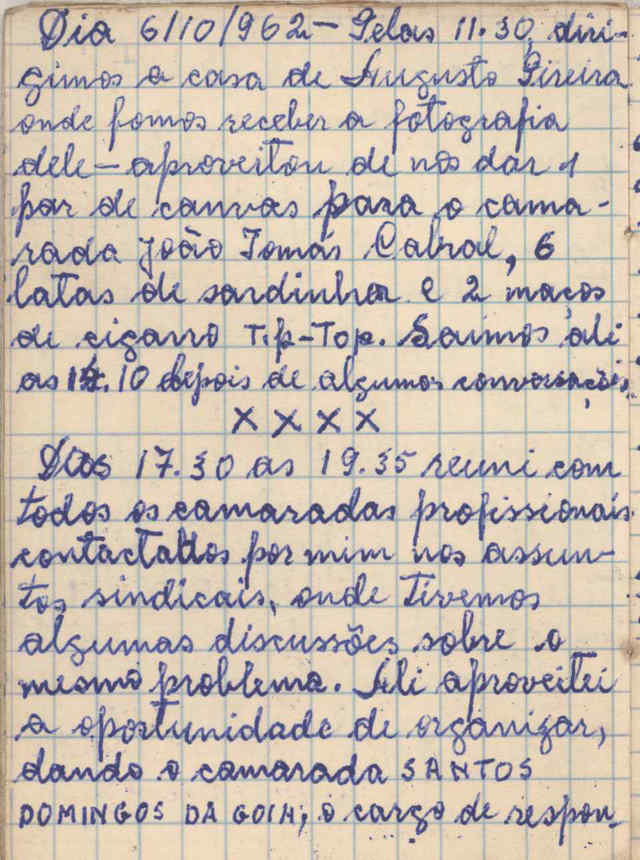 Dia 6/10/962 - Pelas 11.30, diri-
gimos a casa de Augusto Pireira
onde fomos receber a fotografia
dele - aproveitou de nos dar 1
par de canvas para o cama-
rada João Tomás Cabral, 6
latas de sardinha e 2 maços
de cigarro Tip-Top. Saimos ali
as .10 depois de algumas conversações.
X X X X
Das 17.30 as 19.35 reuni com
todos os camaradas profissionais
contactados por mim nos assun-
tos sindicais, onde tivemos
algumas discussões sobre o
mesmo problema. Ali aproveitei
a oportunidade de organizar,
dando o camarada SANTOS
DOMINGOS DA GOIA, o cargo de respon-